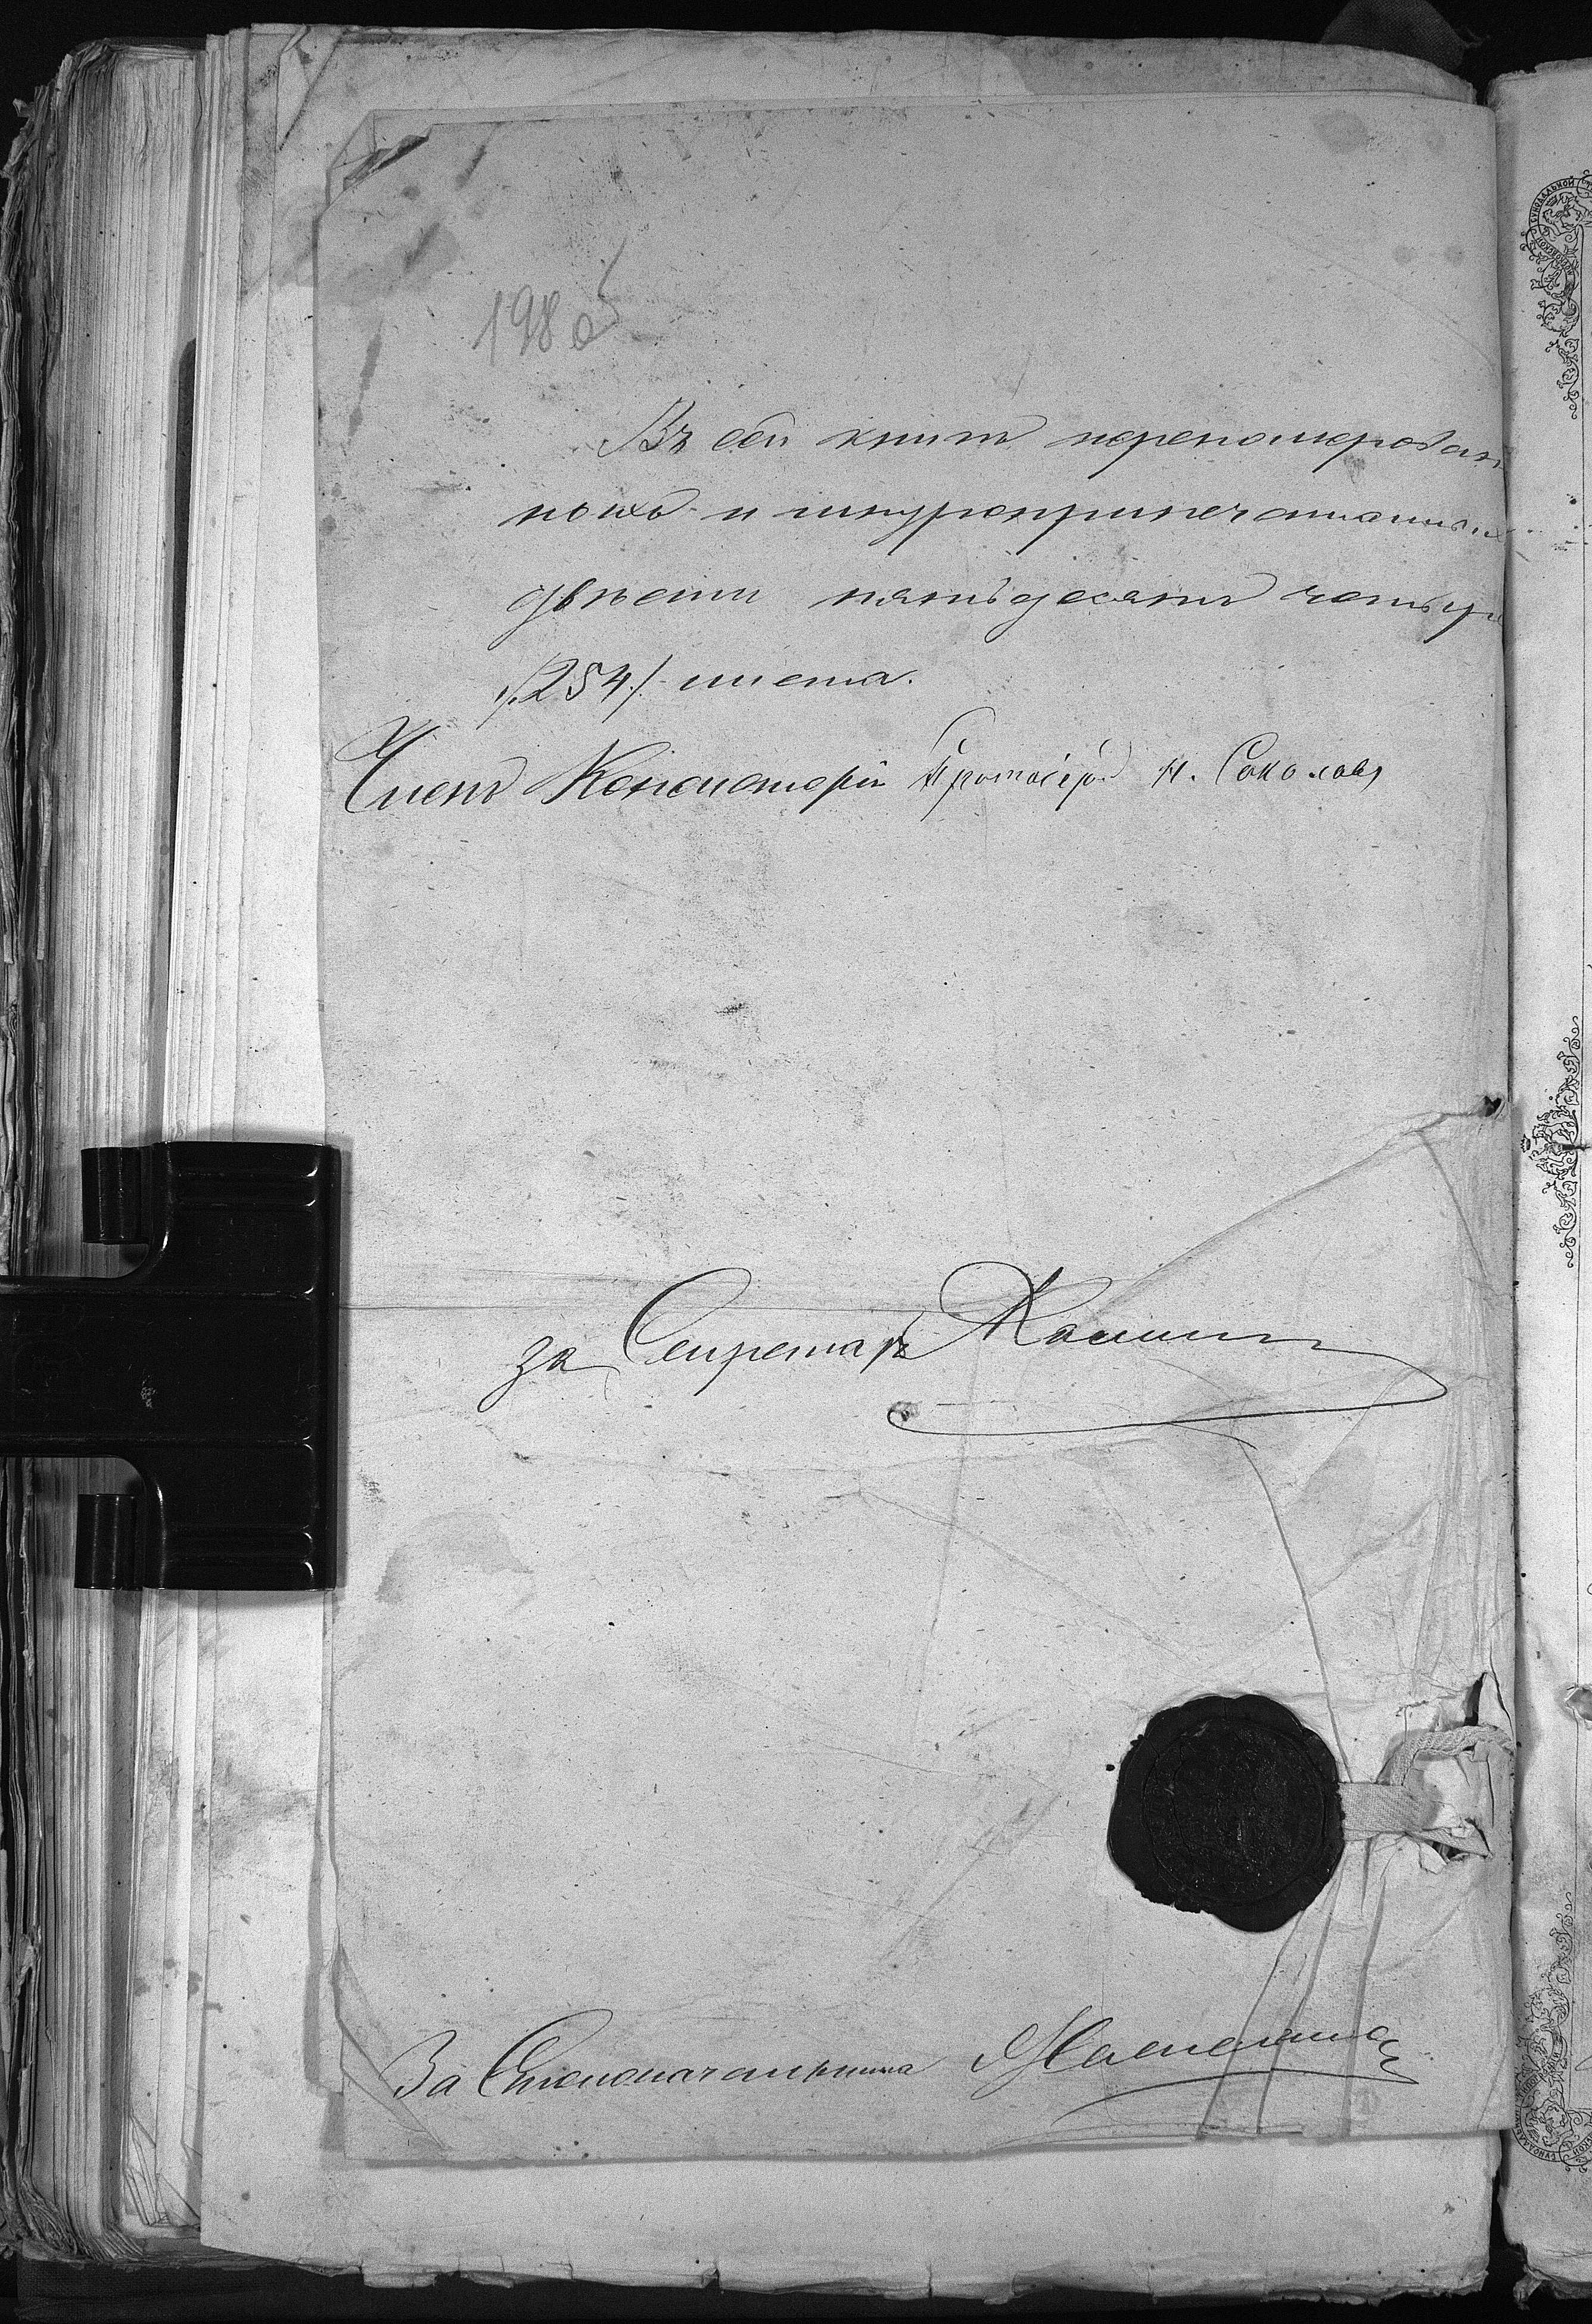 198 об
Въ сей книгѣ перенумерован
ныхъ и шнуроприпечатанныхъ
двѣсти пятьдесятъ четыре
/254./ листа.
Членъ Консисторіи Протоіерей Н. Соколовъ
За Секретаря
За Столоначальника